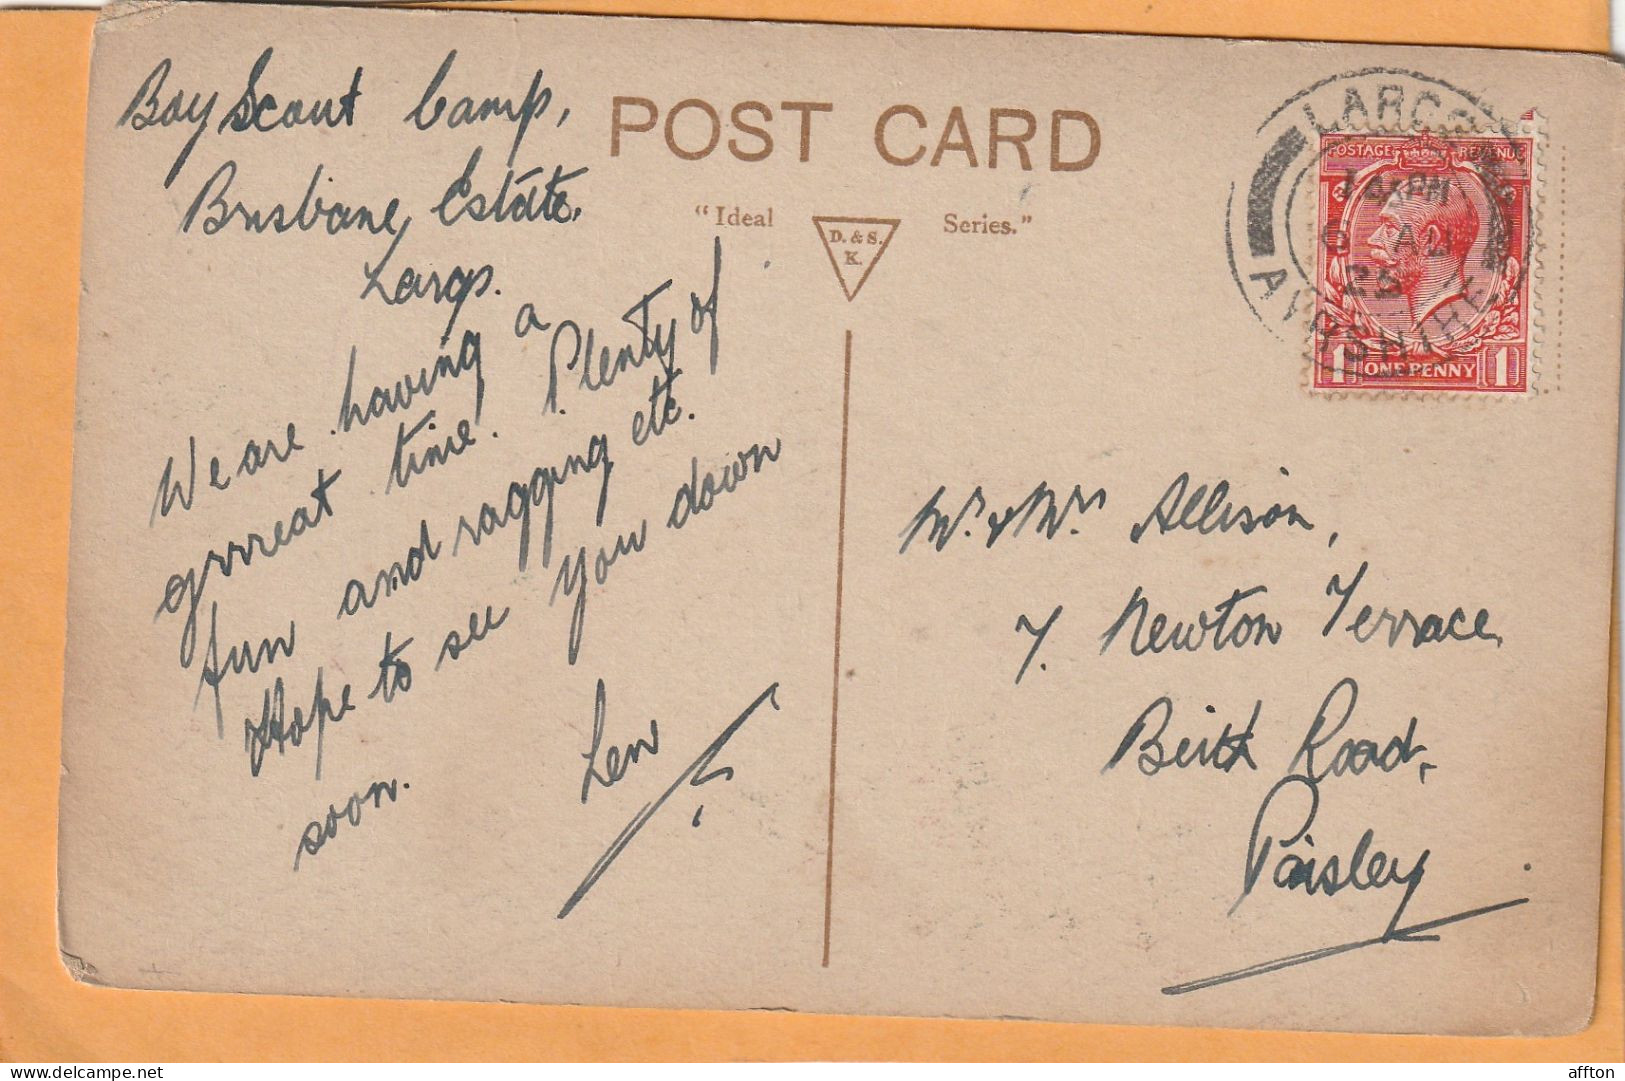 Boy Scout Camp,
Brisbane Estate,
Largs.
We are having a
grrreat time. Plenty of
fun and ragging etc.
Hope to see you down
soon.
Len
POST CARD
"Ideal
Series."
D. & S.
K.
LARGS
AYRSHIRE
PM
AU
25
POSTAGE REVENUE
1 ONE PENNY 1
Mr. & Mrs Allison,
7. Newton Terrace,
Beith Road,
Paisley
affton